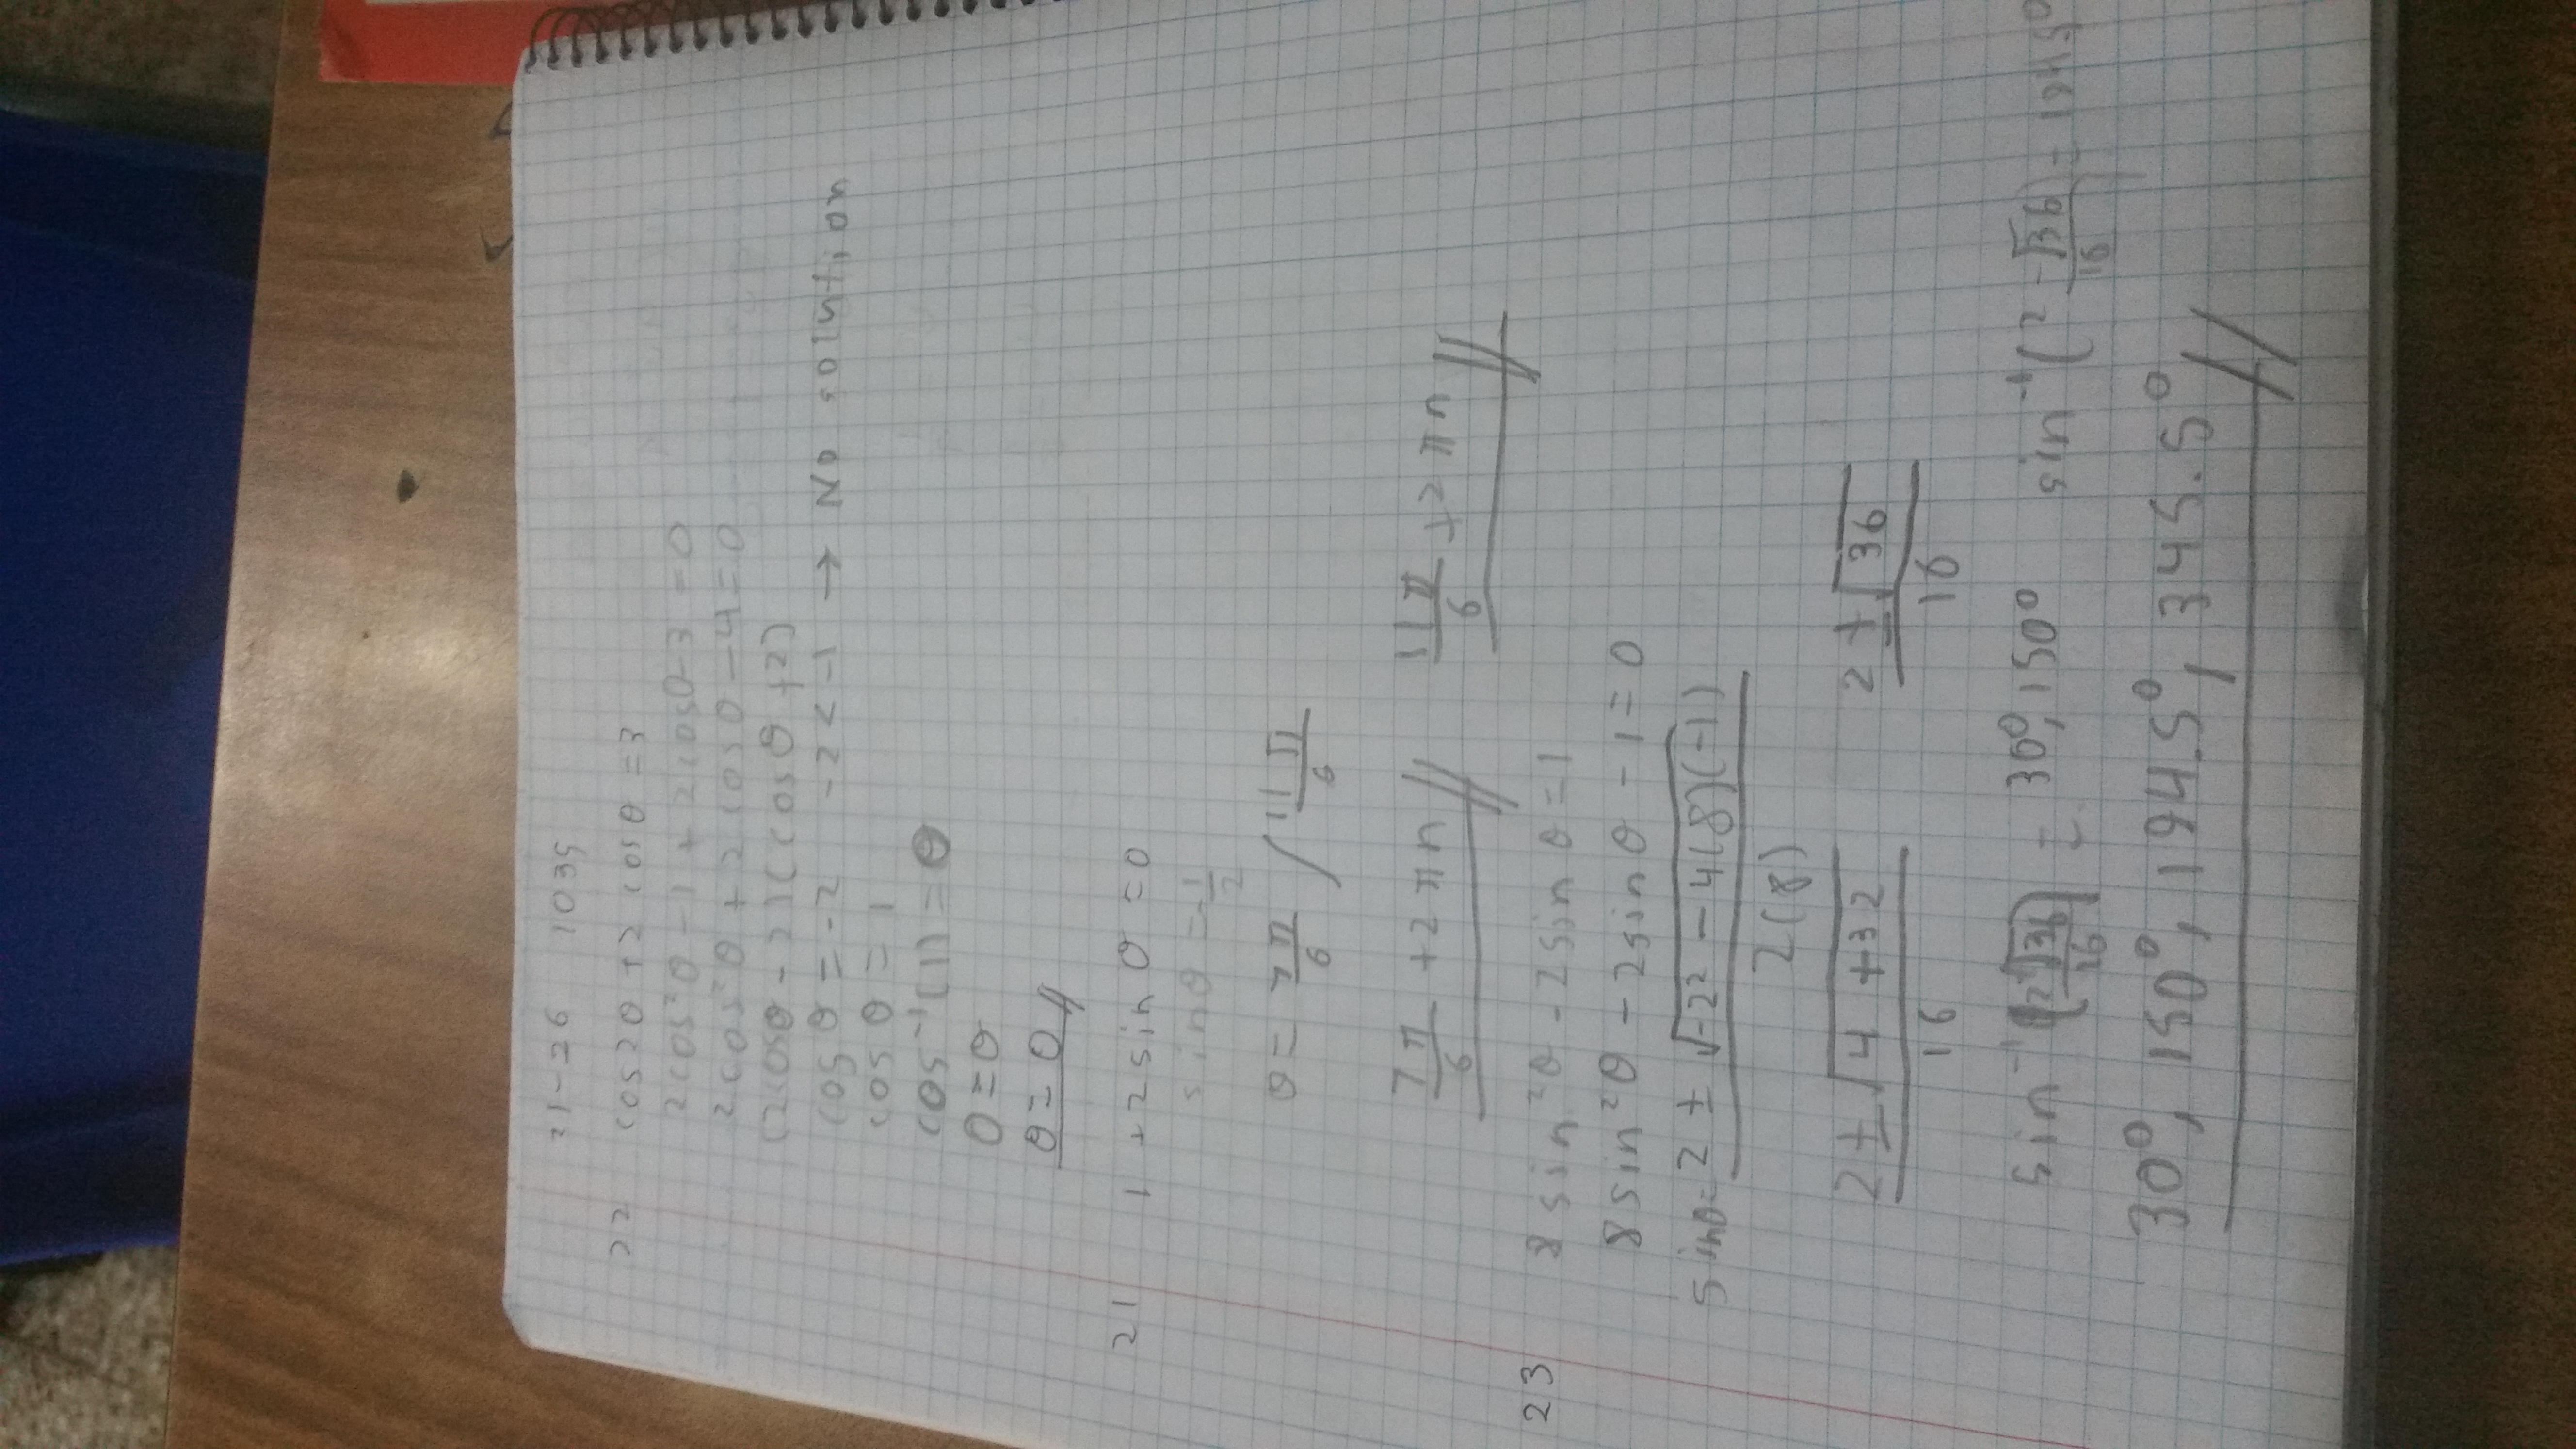 21-26 1035
22 cos2θ + 2cosθ = 3
2cos²θ - 1 + 2cosθ - 3 = 0
2cos²θ + 2cosθ - 4 = 0
(2cosθ - 2)(cosθ + 2)
cosθ = -2 -2 < -1 → No solution
cosθ = 1
cos⁻¹(1) = θ
0 = θ
θ = 0//
21 1 + 2sinθ = 0
sinθ = -1/2
θ = 7π/6 / 11π/6
7π/6 + 2πn// 11π/6 + 2πn//
23 8sin²θ - 2sinθ = 1
8sin²θ - 2sinθ - 1 = 0
sinθ = 2 ± √-2² - 4(8)(-1)
2(8)
2 ± √4 + 32 / 16 2 ± √36 / 16
sin⁻¹(2+√36 / 16) = 30°, 150° sin⁻¹(2 - √36 / 16) = 194.50
30°, 150°, 194.5°, 345.5°//